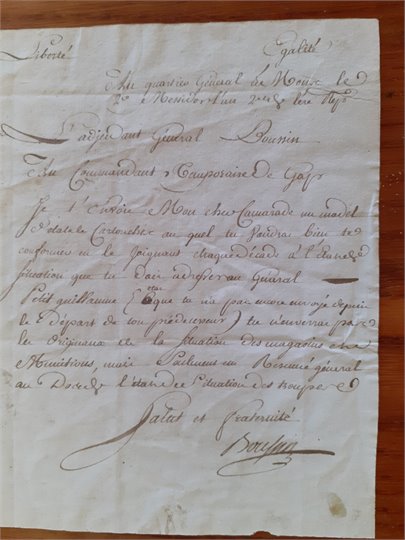 Liberté Egalité
Au quartier Général de le
Messidor l'an 2e de l'ère Rep
L'adjudant Général Boussin
Au Commandant Temporaire de Gap
Je t'Envoie Mon cher Camarade un model
d'état de Cartouches au quel tu Voudras bien te
conformer en le Joignant chaque décade à l'Etat de
situation que tu dois adresser au Général
Petit guillaume (etat que tu n'a pas encore envoyé depuis
le Départ de ton prédécesseur) tu n'enverra pas
les Originaux de la Situation des magasins de
Munitions, mais Seulement un Résumé général
au Dos de l'état de Situation des troupes
Salut et fraternité
Boussin